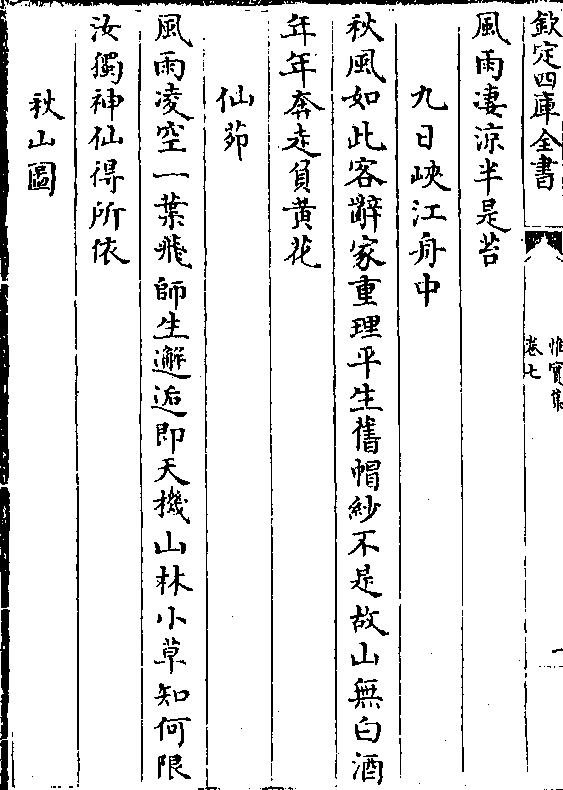 欽定四庫全書
惟實集
卷七
風雨凄涼半是苔
九日峽江舟中
秋風如此客辭家重理平生舊帽紗不是故山無白酒
年年奔走負黄花
仙茆
風雨凌空一葉飛師生邂逅即天機山林小草知何限
汝獨神仙得所依
秋山圖